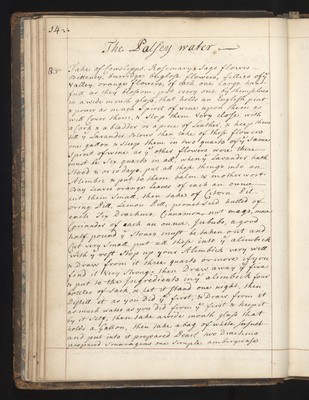 34
The Palsey water
Take of Cowslipps, Rosemary & Sage flowers
Bittony, burridge buglose flowers, lillies of ye
Valley, orange flowers, of each one Large hand
full as they blossom, put every one by themselves
in a wide mouth glass, that holds an English pint
& power as much spirit of wine upon them as
will cover them, & Stop them very close with
a Cork & a bladder or a piece of Leather, & keep them
till ye Lavander blows then take of these flowers
one gallon & steep them in two quarts of ye same
Spirit of wine as the other flowers were there
must be Six quarts in all, when ye Lavander hath
stood or days, put all these things into an
Alimbic & put to them balm & motherwort
Bay leaves orange leaves of each an ounce
cut them Small, then take of Citorn Pil
Lemon Pill, seed hulled of
each Six Drachms Cinnamon nut mags, mace
Coriander of each an ounce, Jububs, a good
half pound ye Stones must be taken out and
Cut very Small, put all these into ye alimbeck
with ye rest Stop up your Alimbick very well
& Draw from it three quarts or more if you
find it very Strong, then Draw away ye fire
& put to the Ingredients in ye alimbeck four
bottles of Sack, & let it stand one night, then
Distill it as you Did ye first, & Draw from it
as much water as you did from ye first & keep it
by it Self, then take a wide mouth glass that
holds a gallon, then take a bag of
and put into it prepared Pearl two Drachms
prepared one Scruple ambergrease